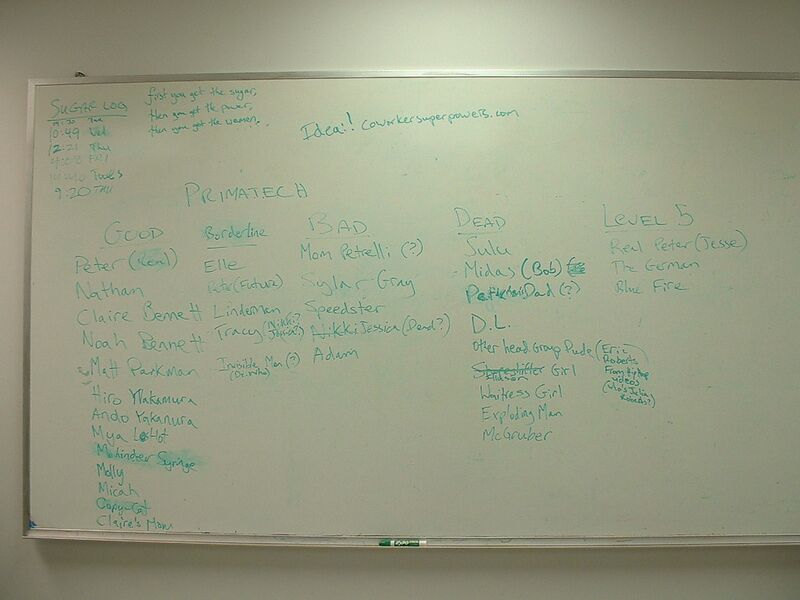 SUGAR LOG
10:49 Wed
12:21 Thu
FRI
Tues
9:20 THU
first you get the sugar,
then you get the power,
then you get the women...
Idea!! coworkersuperpowers.com
PRIMATECH
GOOD
Peter (Real)
Nathan
Claire Bennett
Noah Bennett
Matt Parkman
Hiro Yakamura
Ando Yakamura
Mya
Mohinder Syringe
Molly
Micah
Copy-Cat
Claire's Mom
Borderline
Elle
Peter (Future)
Linderman
Tracy (Nikki?
Jessica?)
Invisible Man (?)
(Dr. Who)
BAD
Mom Petrelli (?)
Sylar Gray
Speedster
Nikki Jessica (Dead?)
Adam
DEAD
Sulu
Midas (Bob)
Dad (?)
D.L.
Other head Group Dude (Eric
Roberts
From Hip Hop
Videos
(Who's Julia
Roberts?)
Girl
Waitress Girl
Exploding Man
McGruber
LEVEL 5
Real Peter (Jesse)
The German
Blue Fire